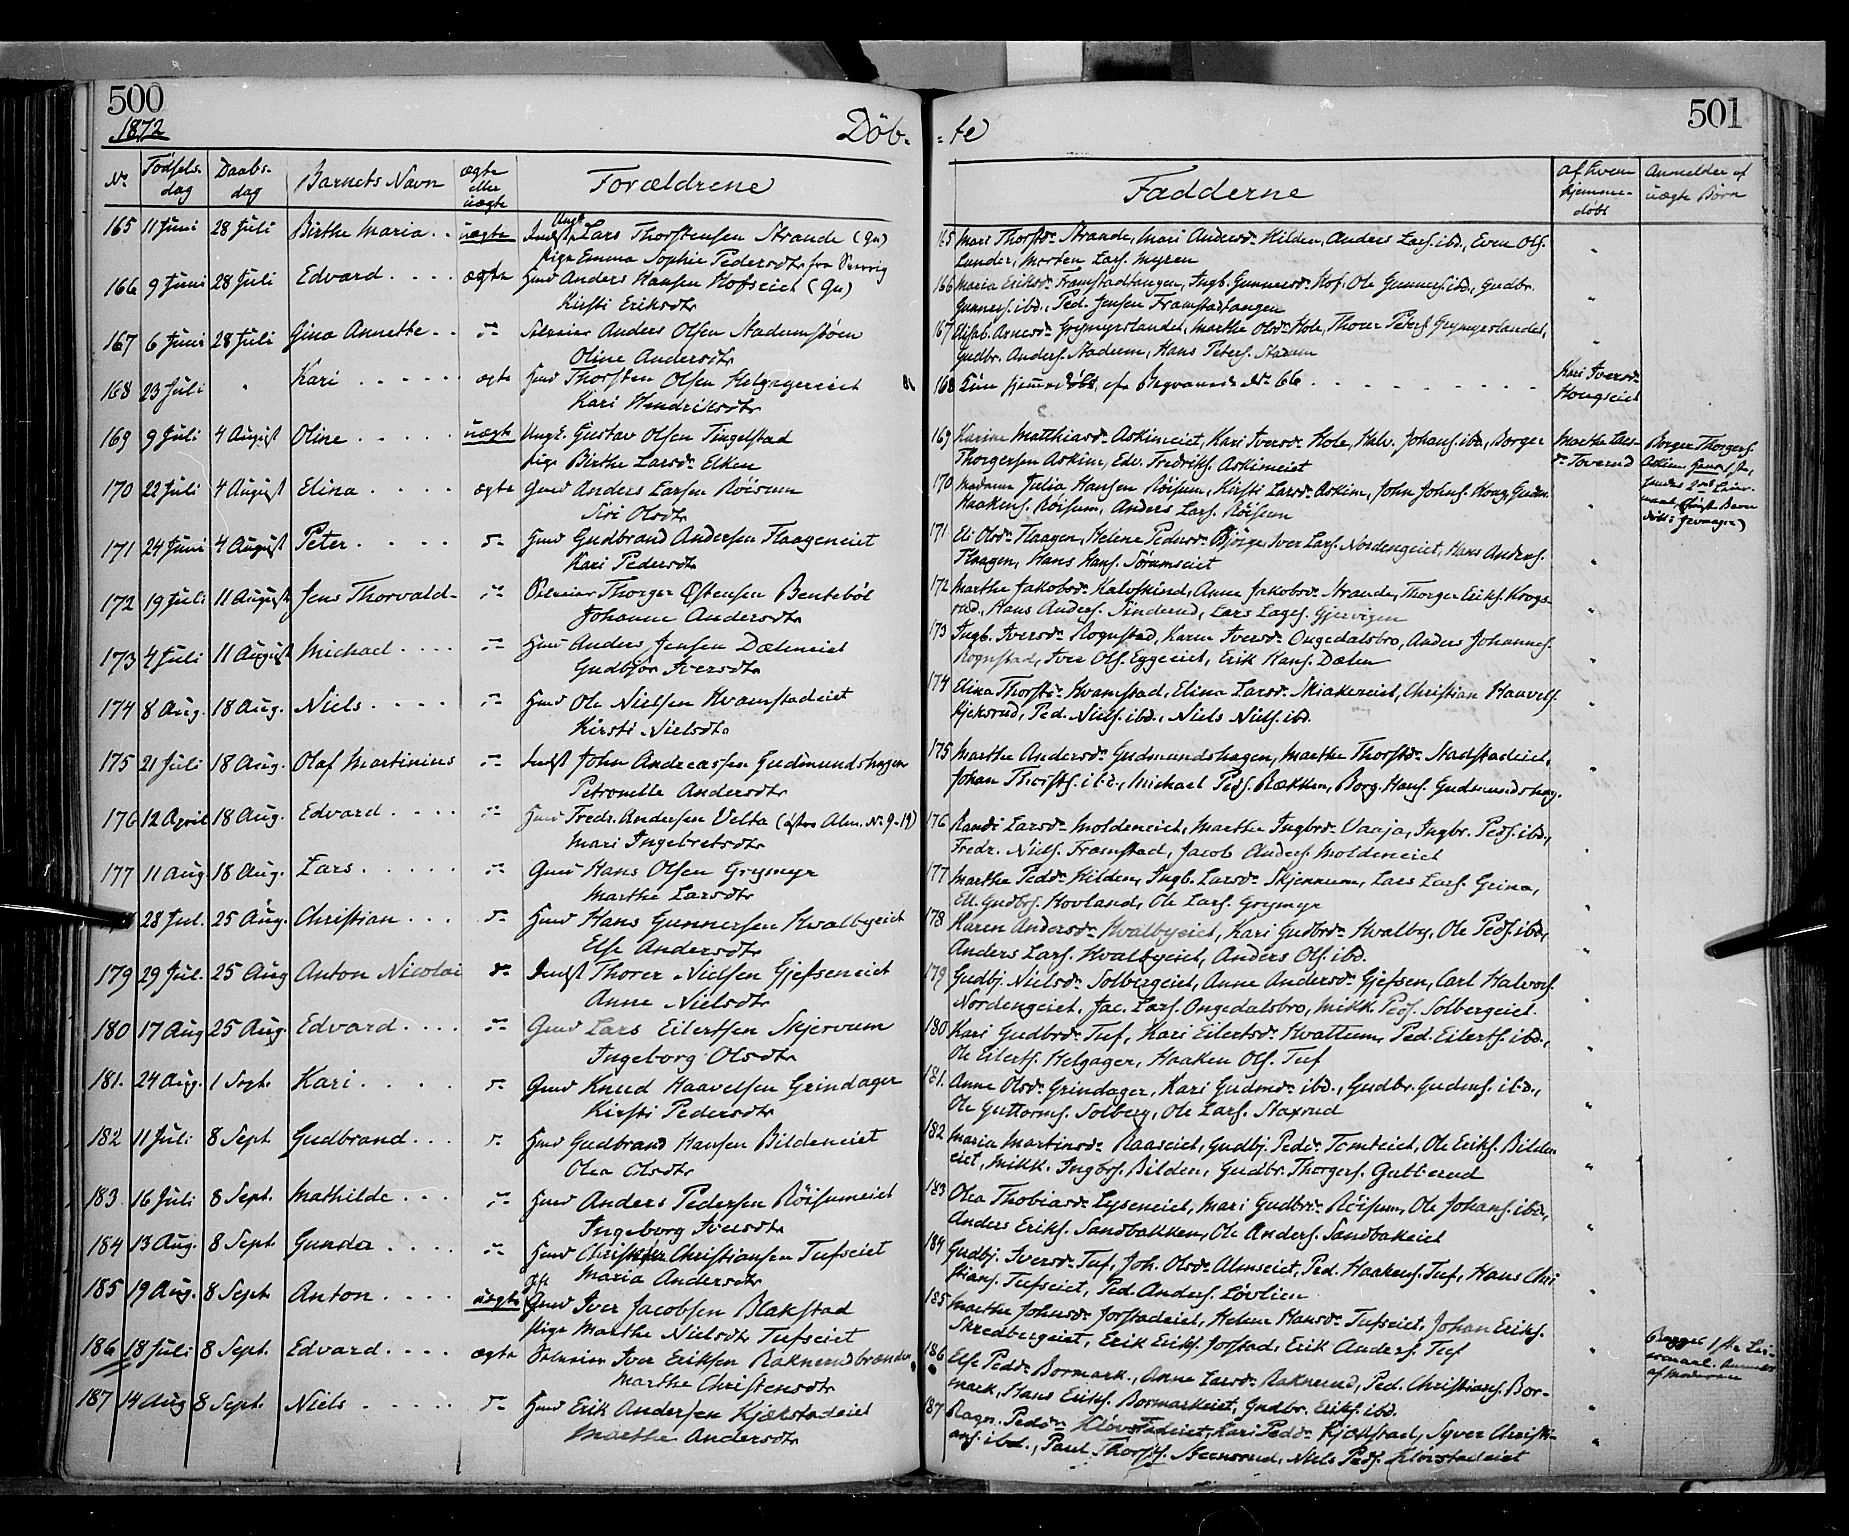 500
1872
Döb-
No
Födsels-
dag
Daabs-
dag
Barnets Navn
ægte
eller
uægte
Forældrene
165 11 Juni 28 Juli Birthe Maria . . uægte Indst. Ungk. Lars Thorstensen Strande (Gn)
Pige Emma Sophie Pedersdtr fra
166 9 Juni 28 Juli Edvard . . . . ægte Husm Anders Hansen Hofseiet (Gn)
Kirsti Eriksdtr
167 6 Juni 28 Juli Gina Annette . . Selveier Anders Olsen Stadumstøen
Oline Andersdtr
168 23 Juli " Kari . . . . . ægte Husm Thorsten Olsen Helgagereiet
Kari Hendriksdtr
169 9 Juli 4 August Oline . . . . . uægte Ungk. Gustav Olsen Tingelstad
Pige Birthe Larsdr Elken
170 22 Juli 4 August Elina . . . . ægte Gmd Anders Larsen Röisum
Siri Olsdtr
171 24 Juni 4 August Peter . . . . . Husm Gudbrand Andersen Flaageneiet
Kari Pedersdtr
172 19 Juli 11 August Jens Thorvald - Selveier Thorger Østensen Benteböl
Johanne Andersdtr
173 4 Juli 11 August Michael . . . . Husm Anders Jensen Dæleneiet
Gudbjör Iversdtr
174 8 Aug. 18 Aug. Niels . . . . Husm Ole Nielsen Hvamstadeiet
Kirsti Nielsdtr
175 21 Juli 18 Aug. Olaf Martinius Indst John Andreassen Gudmundshagen
Petronelle Andersdtr
176 12 April 18 Aug. Edvard . . . . Husm Fredr. Andersen Velta (østre Alm. No 9-19)
Mari Ingebretsdtr
177 11 Aug 18 Aug. Lars . . . . . Gmd Hans Olsen Grymyr
Marthe Larsdtr
28 Jul. 25 Aug. Christian . . . Husm Hans Gunnersen Hvalbyeiet
Else Andersdtr
179 29 Jul. 25 Aug Anton Nicolai Indst Thorer Nielsen Gjefseneiet
Anne Nielsdtr
180 17 Aug 25 Aug. Edvard . . . . Gmd Lars Eilertsen Skjervum
Ingeborg Olsdtr
181. 24 Aug. 1 Sept. Kari . . . . Gmd Knud Haavelsen Grindager
Kirsti Pedersdtr
182 11 Juli 8 Sept Gudbrand . . . Husm Gudbrand Hansen Bildeneiet
Olea Olsdtr
183 16 Juli 8 Sept. Mathilde . . . Husm Anders Pedersen Röisumeiet
Ingeborg Iversdtr
184 13 Aug. 8 Sept Gunda . . . . Husm Christian Christiansen Tufseiet
Maria Andersdtr
185 19 Aug. 8 Sept Anton . . . . uægte Gift Gmd Iver Jacobsen Blakstad
Pige Marthe Nielsdtr Tufseiet
186 18 Juli 8 Sept. Edvard . . . . ægte Selveier Iver Eriksen Raknerudbrænden
Marthe Christensdtr
187 14 Aug 8 Sept. Niels . . . . . Husm Erik Andersen Kjækstadeiet
Marthe Andersdtr
501
-te
Fadderne
af hvem
hjemme-
döbt
Anmelder af
uægte Börn
165 Mari Thorstdr Strande, Mari Andersdr Hilden, Anders Lars. ibd., Even Ols.
Lunder, Morten Lars. Myren "
166 Maria Eriksdr Framstadtangen, Ingb. Gunnersdr Hof, Ole Gunners. ibd., Gudbr.
Gunners. ibd., Ped. Jensen Framstadtangen "
167 Elisab. Arnesdr Grymyrslandet, Marthe Olsdr Hole, Thorer Peters. Grymyrslandet,
Gudbr. Anders. Stadum, Hans Peters. Stadum "
168 Kun hjemmedöbt, cfr Begravede No 66 . . . . . . . . Kari Iversdr
Hougseiet
169 Karine Matthiasdr Askimeiet, Kari Iversdr Hole, Halv. Johans. ibd., Borger
Thorgersen Askim, Edv. Fredriks. Askimeiet
Marthe Lars-
dr Toverud
Borger Thorgers.
Askim
170 Madame Julia Hansen Röisum, Kirsti Larsdr Askim, John Johns. Houg, Gudm.
Haakens. Röisum, Anders Lars. Röisum "
171 Eli Olsdr Flaagen, Helene Pedersdr Bjørge, Iver Lars. Nordengeiet, Hans Anders.
Flaagen, Hans Hans. Sörumseiet "
172 Marthe Jakobsdr Kalvskind, Anne Jakobsdr Strande, Thorger Eriks. Hoogs-
rud, Hans Anders. Sinderud, Lars Lages. Gjervigen "
173 Ingb. Iversdr Rognstad, Karen Iversdr Ongedalsbro, Anders Johannes.
Rognstad, Iver Ols. Eggeeiet, Erik Hans. Dælen "
174 Elina Thorstdr Hvamstad, Elina Larsdr Skiakereiet, Christian Haavels.
Kjeksrud, Ped. Niels. ibd., Niels Niels. ibd. "
175 Marthe Andersdr Gudmundshagen, Marthe Thorstdr Stadstadeiet,
Johan Thorsts. ibd., Michael Peds. Bækken, Borg. Hans. Gudmundshag. "
176 Randi Larsdr Moldeneiet, Marthe Ingbrdr Vaaja, Ingbr. Peds. ibd.,
Fredr. Niels. Framstad, Jacob Anders. Moldeneiet "
177 Marthe Peddr Hilden, Ingb. Larsdr Skjennum, Lars Lars. Grina,
Ell. Gudbrs. Hovland, Ole Lars. Grymyr "
178 Karen Andersdr Hvalbyeiet, Kari Gudbrdr Hvalby, Ole Peds. ibd.,
Anders Lars. Hvalbyeiet, Anders Ols. ibd. "
179 Gudbj. Nielsdr Solbergeiet, Anne Andersdr Gjefsen, Carl Halvors.
Nordengeiet, Jac. Lars. Ongedalsbro, Mikk. Peds. Solbergeiet. "
180 Kari Gudbrdr Tuf, Kari Eilertsdr Hvattum, Ped. Eilerts. ibd.,
Ole Eilerts. Helgager, Haaken Ols. Tuf "
181. Anne Olsdr Grindager, Kari Gudmdr ibd., Gudbr. Gudms. ibd.,
Ole Guttorms. Solberg, Ole Lars. Staxrud "
182 Maria Martinsdr Raaseiet, Gudbj. Peddr Tomteiet, Ole Eriks. Bilden
eiet, Mikk. Ingbrs. Bilden, Gudbr. Thorgers. Gullerud "
183 Olea Thobiasdr Lyseneiet, Mari Gudbrdr Röisum, Ole Johans. ibd.,
Anders Eriks. Sandbakken, Ole Anders. Sandbakeiet "
184 Gudbj. Iversdr Tuf, Joh. Olsdr Almseiet, Ped. Haakens. Tuf, Hans Chri
stians. Tufseiet, Ped. Anders. Lövlien "
185 Marthe Johnsdr Jorstadeiet, Helene Hansdr Tufseiet, Johan Eriks.
Skredbergeiet, Erik Eriks. Jorstad, Erik Anders. Tuf "
Begges 1ste Lei-
ermaal. Anmeldt
af Moderen
186 Else Peddr Bormark, Anne Larsdr Raknerud, Ped. Christians. Bor-
mark, Hans Eriks. Bormarkeiet, Gudbr. Eriks. ibd. "
187 Ragn. Peddr Klövstadeiet, Kari Peddr Kjækstad, Syver Christi-
ans. ibd., Paul Thorsts. Steensrud, Niels Peds. Klövstadeiet "